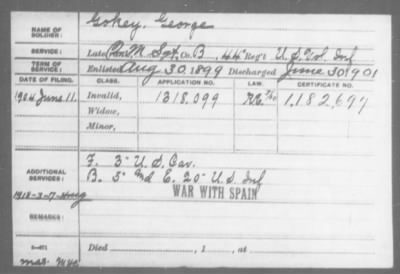 NAME OF SOLDIER: Gokey, George
SERVICE: Late Q.M. Sgt. Co. B, 44" Reg't U.S. Vol. Inf
TERM OF SERVICE: Enlisted Aug 30, 1899 Discharged June 30, 1901
DATE OF FILING. CLASS. APPLICATION NO. LAW. CERTIFICATE NO.
1904 June 11. Invalid, 1318,099 1,182,677
Widow,
Minor,
ADDITIONAL SERVICES: F. 3" U.S. Cav.
B. 5" and E. 20" U.S. Inf
1918-3-7-
WAR WITH SPAIN
REMARKS:
Died , 1 , at